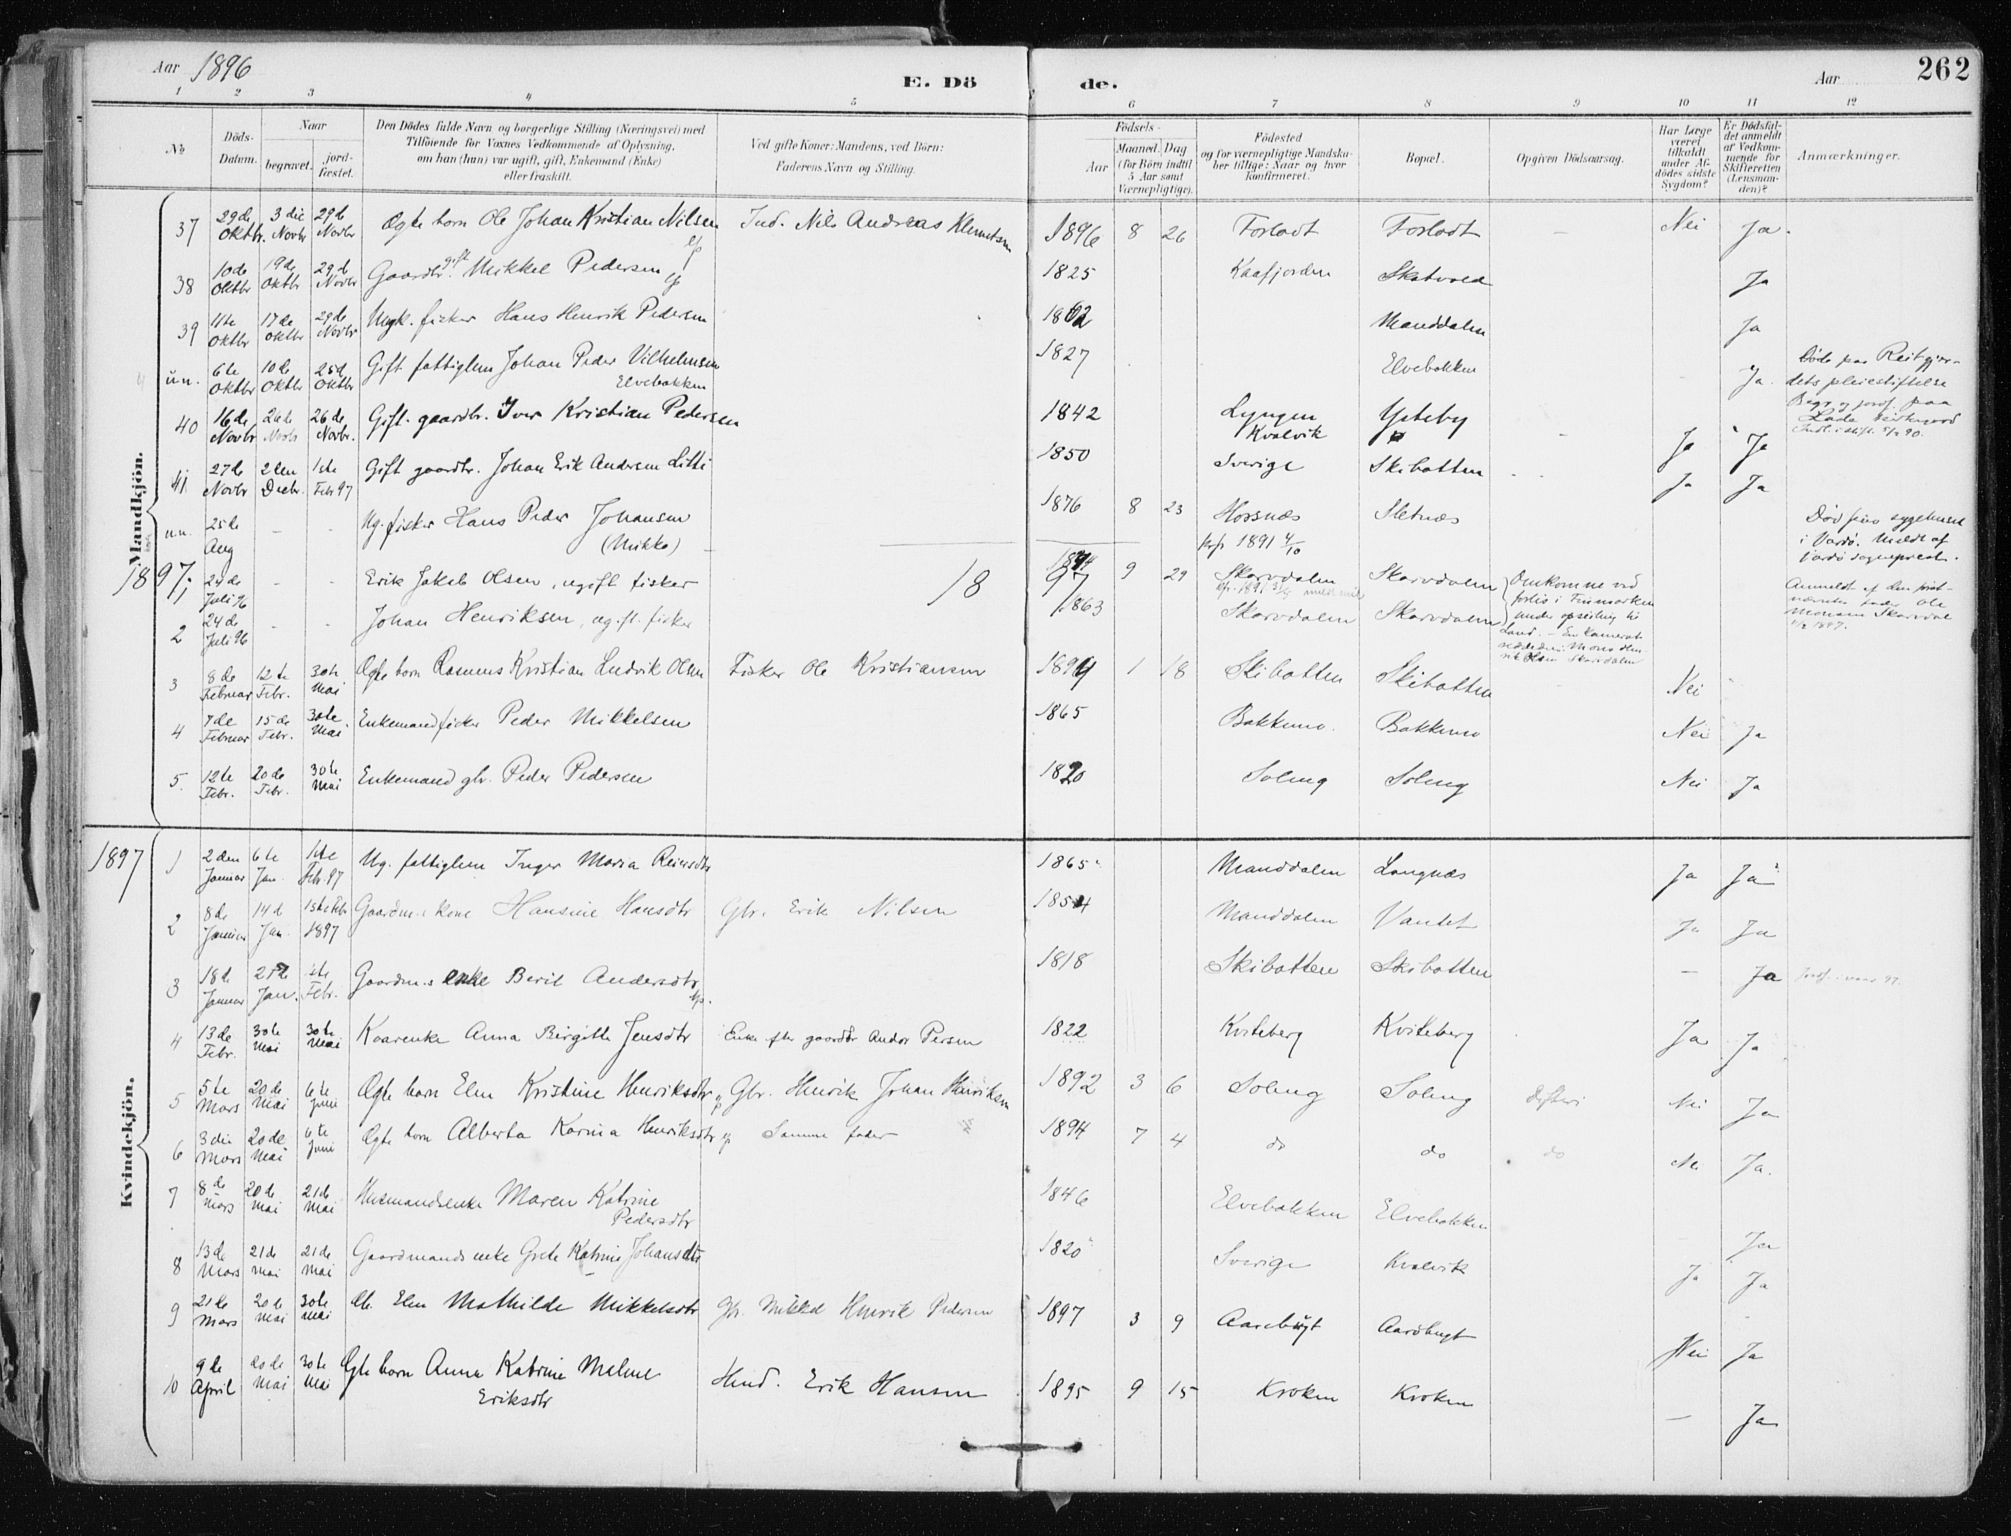 Aar 1896 E. Döde. Aar 262
1 2 3 4 5 6 7 8 9 10 11 12
No
Döds-Datum.
Naar
begravet.
jord-fæstet.
Den Dödes fulde Navn og borgerlige Stilling (Næringsvei) med
Tilföiende for Voxnes Vedkommende af Oplysning,
om han (hun) var ugift, gift, Enkemand (Enke)
eller fraskilt.
Ved gifte Koner: Mandens, ved Börn:
Faderens Navn og Stilling.
Födsels-
Aar
Maaned. Dag
(for Börn indtil
5 Aar samt
Værnepligtige).
Födested
og for værnepligtige Mandska-
ber tillige: Naar og hvor
konfirmeret.
Bopæl.
Opgiven Dödsaarsag.
Har Læge
været
tilkaldt
under Af-
dödes sidste
Sygdom?
Er Dödsfal-
det anmeldt
af Vedkom-
mende for
Skifteretten
(Lensman-
den)?
Anmærkninger.
Mandkjön.
37 29de Oktbr. 3die Novbr 29de Novbr Ægte barn Ole Johan Kristian Nilsen Ind. Nils Andreas Klemetsen 1896 8 26 Forladt Forladt Nei Ja.
38 10de Oktbr 19de Oktbr 29de Novbr Gaardbr. gift Mikkel Pedersen 1825 Kaafjorden Skatvold Ja
39 11te Oktbr 17de Oktbr 29de Novbr Ungk. fisker Hans Henrik Pedersen 1862 Manddalen Ja
un. 6te Oktbr 10de Oktbr 25de Oktbr Gift fattiglem Johan Peder Vilhelmsen Elvebakken 1827 Elvebakken Ja. Döde paa Reitgjær-
dets pleiestiftelse
Begr. og jordf. paa
Lade kirkegaard
40 16de Novbr 26de Novbr 26de Novbr. Gift. gaardbr. Iver Kristian Pedersen 1842 Lyngen Kvalvik Ysteby Ja Ja
41. 27de Novbr 2den Decbr. 1ste Febr 97 Gift gaardbr. Johan Erik Andersen Litti 1850 Sverige Skibotten Ja Ja
un. 25de Aug - - Ug. fisker Hans Peder Johansen (Mikko) 1876 8 23 Horsnæs Sletnæs Död paa sygehuset
i Vardö. Meldt af
Vardö sogneprest.
konf. 1891 4/10
1897.
1 24de Juli 96 - - Erik Jakob Olsen, ugift fisker 1897 9 29 Skarvdalen Skarvdalen Omkomne ved
forlis i Finmarken
under opseiling til
Land. - En kamerat
Anmeldt af den
fader Ole
Monsen Skarvdal
1897.
2 24de Juli 96 - - Johan Henriksen, ugift. fisker 1863 Skarvdalen Skarvdalen
3 8de Februar 12te Febr. 30te Mai Ægte barn Rasmus Kristian Ludvik Olsen Fisker Ole Kristiansen 1894 1 18 Skibotten Skibotten Nei
4 7de Februar 15de Febr. 30te Mai Enkemand fisker Peder Mikkelsen 1865 Bakkemo. Bakkemo Nei Ja
5. 12te Febr. 20de Febr. 30te Mai Enkemand gbr. Peder Pedersen 1820 Soleng Soleng Nei Ja
Kvindekjön.
1897 1 2den Januar 6te Jan. 1ste Febr. 97 Ug. fattiglem Inger Maria Reiersdtr 1865 Manddalen Langnæs Ja Ja
2 8de Januar 14de Jan. 1ste Febr 1897 Gaardm.s kone Hansine Hansdtr Gbr. Erik Nilsen 1854 Manddalen Vandet Ja Ja
3 18de Januar 21de Jan. 1ste Febr. Gaardm.s enke Beril Andersdtr 1818 Skibotten Skibotten - Ja
4 13de Febr. 30te Mai 30te Mai Kaarenke Anna Birgitte Jensdtr Enke efter gaardbr Andor Persen 1822 Kviteberg Kviteberg Ja Ja
5 5te Mars 20de Mai 6te Juni Ægte barn Elen Kristine Henriksdtr Gbr. Henrik Johan Henriksen 1892 3 6 Soleng Soleng difteri Nei Ja
6 3die Mars 20de Mai 6te Juni Ægte barn Alberta Karina Henriksdtr Samme fader 1894 7 4 do do do Nei Ja.
7 8de Mars 20de Mai 21de Mai Husmandsenke Maren Katrine Pedersdtr 1846 Elvebakken Elvebakken Ja
8 13de Mars 21de Mai 21de Mai Gaardmands enke Grete Katrine Johansdtr 1820 Sverige Kvalvik Ja Ja
9 21de Mars 20de Mai 30te Mai Elen Mathilde Mikkelsdtr Gbr. Mikkel Henrik Pedersen 1897 3 9 Aarebugt Aarebugt Nei Ja
10 9de April 20de Mai 30te Mai Ægte barn Anna Katrine Meline Eriksdtr Husmd. Erik Hansen 1895 9 15 Kroken Kroken - Ja